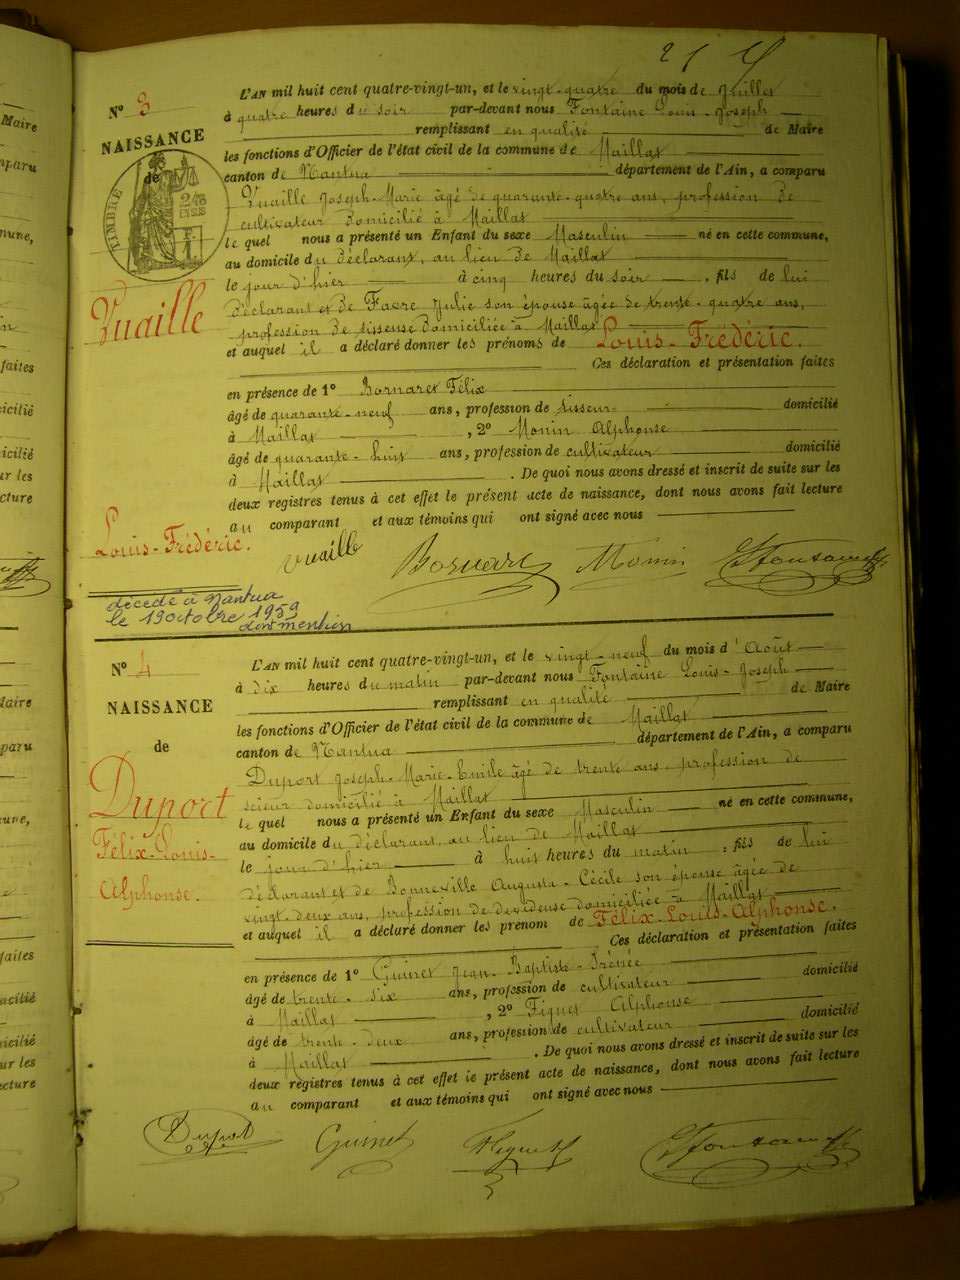 N° 3
NAISSANCE
de
TIMBRE
Vuaille
Louis-Frédéric.
L'AN mil huit cent quatre-vingt-un, et le vingt-quatre du mois de Juillet
à quatre heures du soir par-devant nous Fontaine Louis-Joseph
remplissant en qualité de Maire
les fonctions d'Officier de l'état civil de la commune de Maillat
canton de Nantua département de l'Ain, a comparu
Vuaille Joseph-Marie âgé de quarante-quatre ans, profession de
cultivateur domicilié à Maillat
le quel nous a présenté un Enfant du sexe Masculin né en cette commune,
au domicile du déclarant, au lieu de Maillat
le jour d'hier à cinq heures du soir, fils de lui
déclarant et de Favre Julie son épouse âgée de trente-quatre ans,
profession de tisseuse domiciliée à Maillat
et auquel il a déclaré donner les prénoms de Louis-Frédéric.
Ces déclaration et présentation faites
en présence de 1° Bornaret Félix
âgé de quarante-neuf ans, profession de tisseur domicilié
à Maillat, 2° Monin Alphonse
âgé de quarante-huit ans, profession de cultivateur domicilié
à Maillat. De quoi nous avons dressé et inscrit de suite sur les
deux registres tenus à cet effet le présent acte de naissance, dont nous avons fait lecture
au comparant et aux témoins qui ont signé avec nous
Vuaille Monin
décédé à Nantua
le 19 octobre 1959
dont mention
N° 4
NAISSANCE
de
Duport
Félix-Louis-
Alphonse.
L'AN mil huit cent quatre-vingt-un, et le vingt-neuf du mois d'Août
à dix heures du matin par-devant nous Fontaine Louis-Joseph
remplissant en qualité de Maire
les fonctions d'Officier de l'état civil de la commune de Maillat
canton de Nantua département de l'Ain, a comparu
Duport Joseph-Marie-Emile âgé de trente ans, profession de
scieur domicilié à Maillat
le quel nous a présenté un Enfant du sexe Masculin né en cette commune,
au domicile du déclarant, au lieu de Maillat
le jour d'hier à huit heures du matin, fils de lui
déclarant et de Bonneville Augusta-Cécile son épouse âgée de
vingt-deux ans, profession de dévideuse domiciliée à Maillat
et auquel il a déclaré donner les prénom de Félix-Louis-Alphonse.
Ces déclaration et présentation faites
en présence de 1° Guinet Jean-Baptiste-Irénée
âgé de trente-six ans, profession de cultivateur domicilié
à Maillat, 2° Figuet Alphonse
âgé de trente-deux ans, profession de cultivateur domicilié
à Maillat. De quoi nous avons dressé et inscrit de suite sur les
deux registres tenus à cet effet le présent acte de naissance, dont nous avons fait lecture
au comparant et aux témoins qui ont signé avec nous
Duport Guinet Figuet